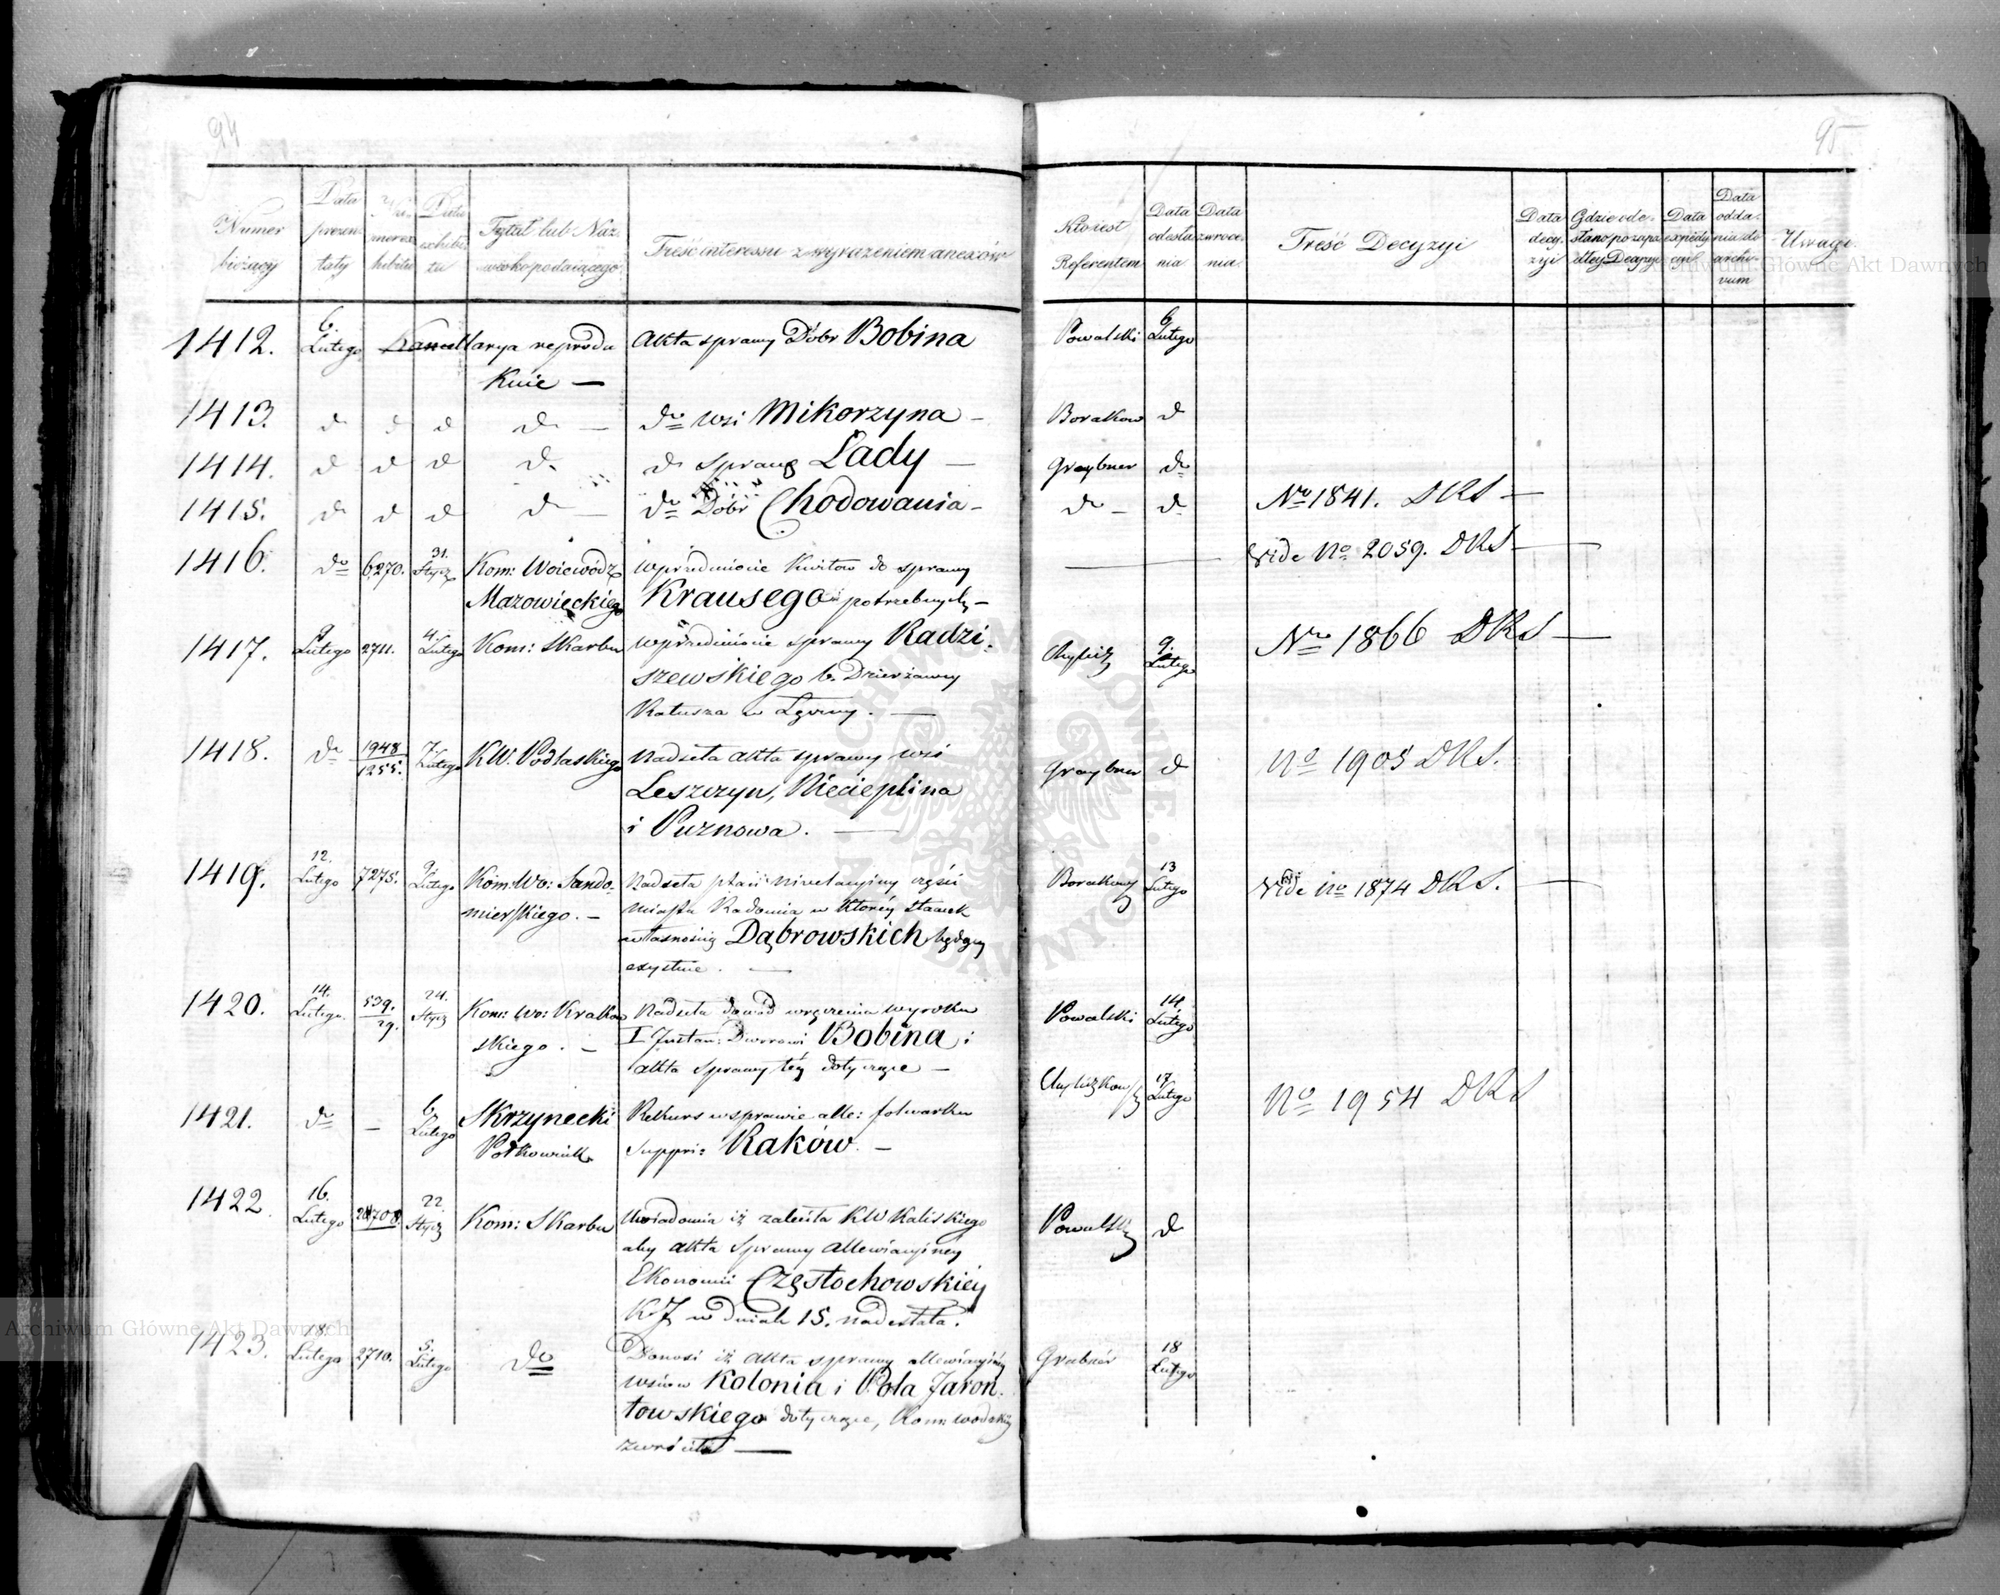 94
Numer bieżący
Data prezentaty
Numer exhibitu
Data exhibitu
Tytuł lub Nazwisko podaiącego
Treść interessu z wyrażeniem anexów
1412. 6. Lutego Kancellarya reprodu Akta sprawy Dóbr Bobina
kuie —
1413. d d d d — do wsi Mikorzyna —
1414. d d d d. d sprawy Lady —
1415. d d d d — do Dóbr Chodowania —
1416. do 6,270. 31. Stycz Kom: Woiewódz wprzedmiocie kwitów do sprawy
Mazowieckiego Krausego potrzebnych —
1417. 9 Lutego 2711. 4. Lutego Kom: Skarbu wprzedmiocie sprawy Radzi-
szewskiego b. Dzierżawcy
Ratusza w .—
1418. do 1948/1255. 7. Lutego KW. Podlaskiego Nadseła akta sprawy wsi
Leszczyn, Niecieplina
i Puznowa. —
1419. 12. Lutego 7275. 9. Lutego Kom: Wo: Sando- Nadseła plan niwelacyiny części
mierskiego. — miasta Radomia w którey stawek
własnością Dąbrowskich będący
exystuie. —
1420. 14. Lutego. 539./29. 24. Stycz Kom: Wo: Krakow Nadseła dowód wręczenia wyroku
skiego. — I Instan: Dworowi Bobina i
akta sprawy téy dotyczące —
1421. do — 6. Lutego Skrzynecki Rekurs w sprawie alle: folwarku
Półkownik Suppri: Raków. —
1422. 16. Lutego 22. Stycz Kom: Skarbu Uwiadomia iż zaleciła KW Kaliskiego
aby akta sprawy allewiacyiney
Ekonomii Częstochowskiéy
w dniach 15. nadesłała.
1423. 18. Lutego 2710. 5. Lutego do Donosi iż akta sprawy allewiacyinéy
wsiów Kolonia i Pola Jaron-
towskiego dotyczące, Kom: wodzkiéy
zwróciła —
95
Kto iest Referentem
Data odesłania
Data zwrócenia
Treść Decyzyi
Data decyzyi
Gdzie odesłano po zapadłey Decyzyi
Data expedycyi
Data oddania do archivum
Uwagi
Powalski 6 Lutego
Borakow d
Graybner do
do — d No 1841. DKS —
— Vide No 2059. DKS —
9. Lutego Nro 1866 DKS —
Graybner d No 1905 DKS.
13 Lutego Vide No 1874 DKS. —
Powalski 14. Lutego
17 Lutego No 1954 DKS
Powalski d
Grabner 18 Lutego
Archiwum Główne Akt Dawnych
Archiwum Główne Akt Dawnych